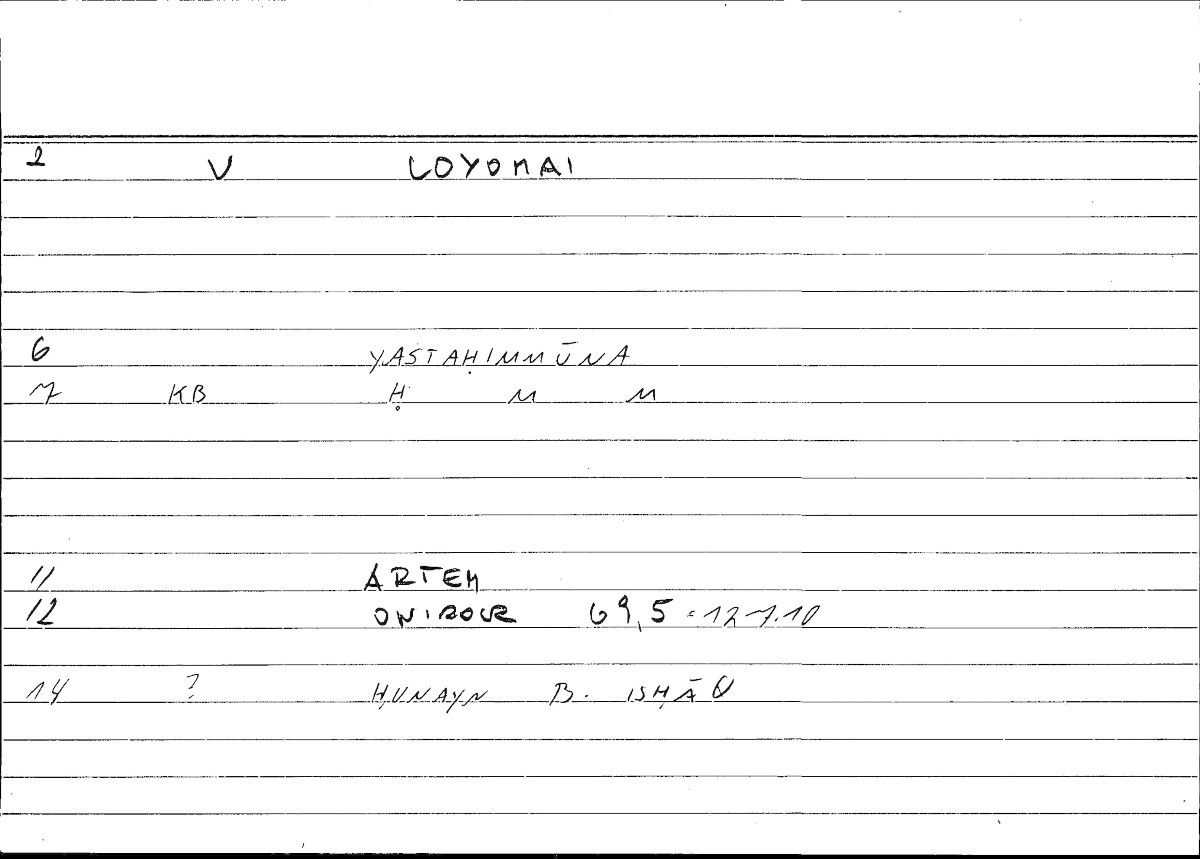 2 V LOYOMAI
6 YASTAḤIMMŪNA
7 KB Ḥ M M
11 ARTEM
12 ONIROCR 69,5 = 12-7.10
14 ? ḤUNAYN B. ISḤĀQ